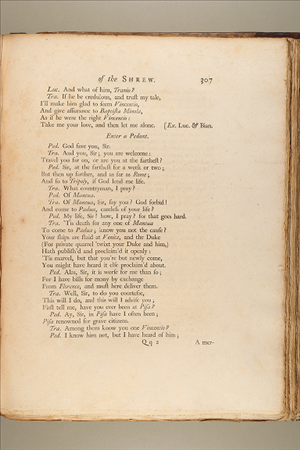 of the SHREW. 307
Luc. And what of him, Tranio?
Tra. If he be credulous, and trust my tale,
I'll make him glad to seem Vincentio,
And give assurance to Baptista Minola,
As if he were the right Vincentio:
Take me your love, and then let me alone. [Ex. Luc. & Bian.
Enter a Pedant.
Ped. God save you, Sir.
Tra. And you, Sir; you are welcome:
Travel you far on, or are you at the farthest?
Ped. Sir, at the farthest for a week or two;
But then up farther, and as far as Rome;
And so to Tripoly, if God lend me life.
Tra. What countryman, I pray?
Ped. Of Mantua.
Tra. Of Mantua, Sir, say you? God forbid!
And come to Padua, careless of your life?
Ped. My life, Sir! how, I pray? for that goes hard.
Tra. 'Tis death for any one of Mantua
To come to Padua; know you not the cause?
Your ships are staid at Venice, and the Duke
(For private quarrel 'twixt your Duke and him,)
Hath publish'd and proclaim'd it openly:
'Tis marvel, but that you're but newly come,
You might have heard it else proclaim'd about.
Ped. Alas, Sir, it is worse for me than so;
For I have bills for mony by exchange
From Florence, and must here deliver them.
Tra. Well, Sir, to do you courtesie,
This will I do, and this will I advise you;
First tell me, have you ever been at Pisa?
Ped. Ay, Sir, in Pisa have I often been;
Pisa renowned for grave citizens.
Tra. Among them know you one Vincentio?
Ped. I know him not, but I have heard of him;
Qq 2 A mer-